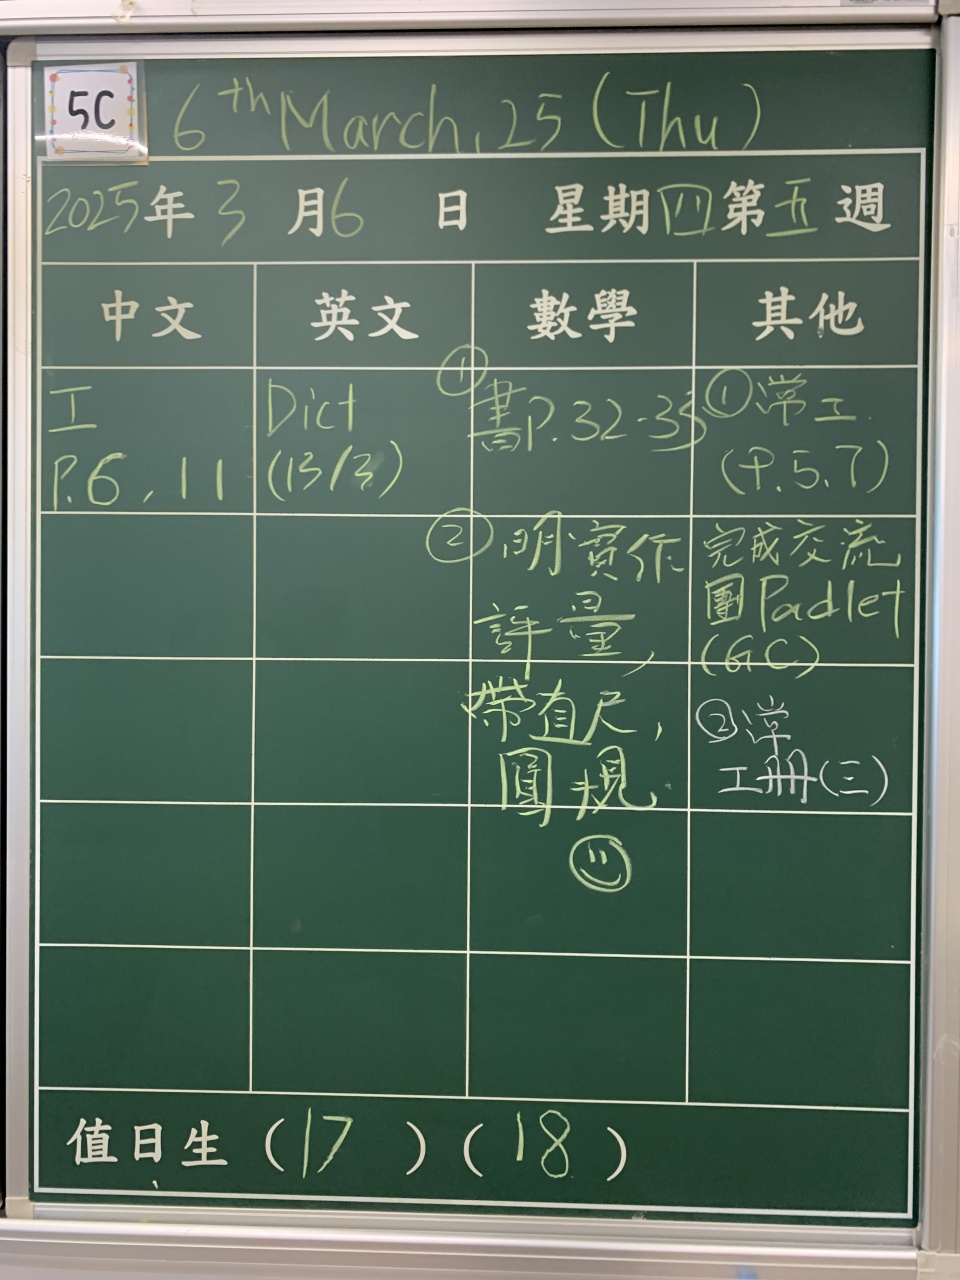 5C
6th March, 25 (Thu)
2025年3月6日 星期四第五週
中文 英文 數學 其他
工
P.6, 11
Dict
(13/3)
① 書P.32-35
② 明實作
評量,
帶直尺,
圓規
① 常工
(P.5,7)
完成交流
團Padlet
(GC)
② 常
工冊(三)
值日生 (17) (18)